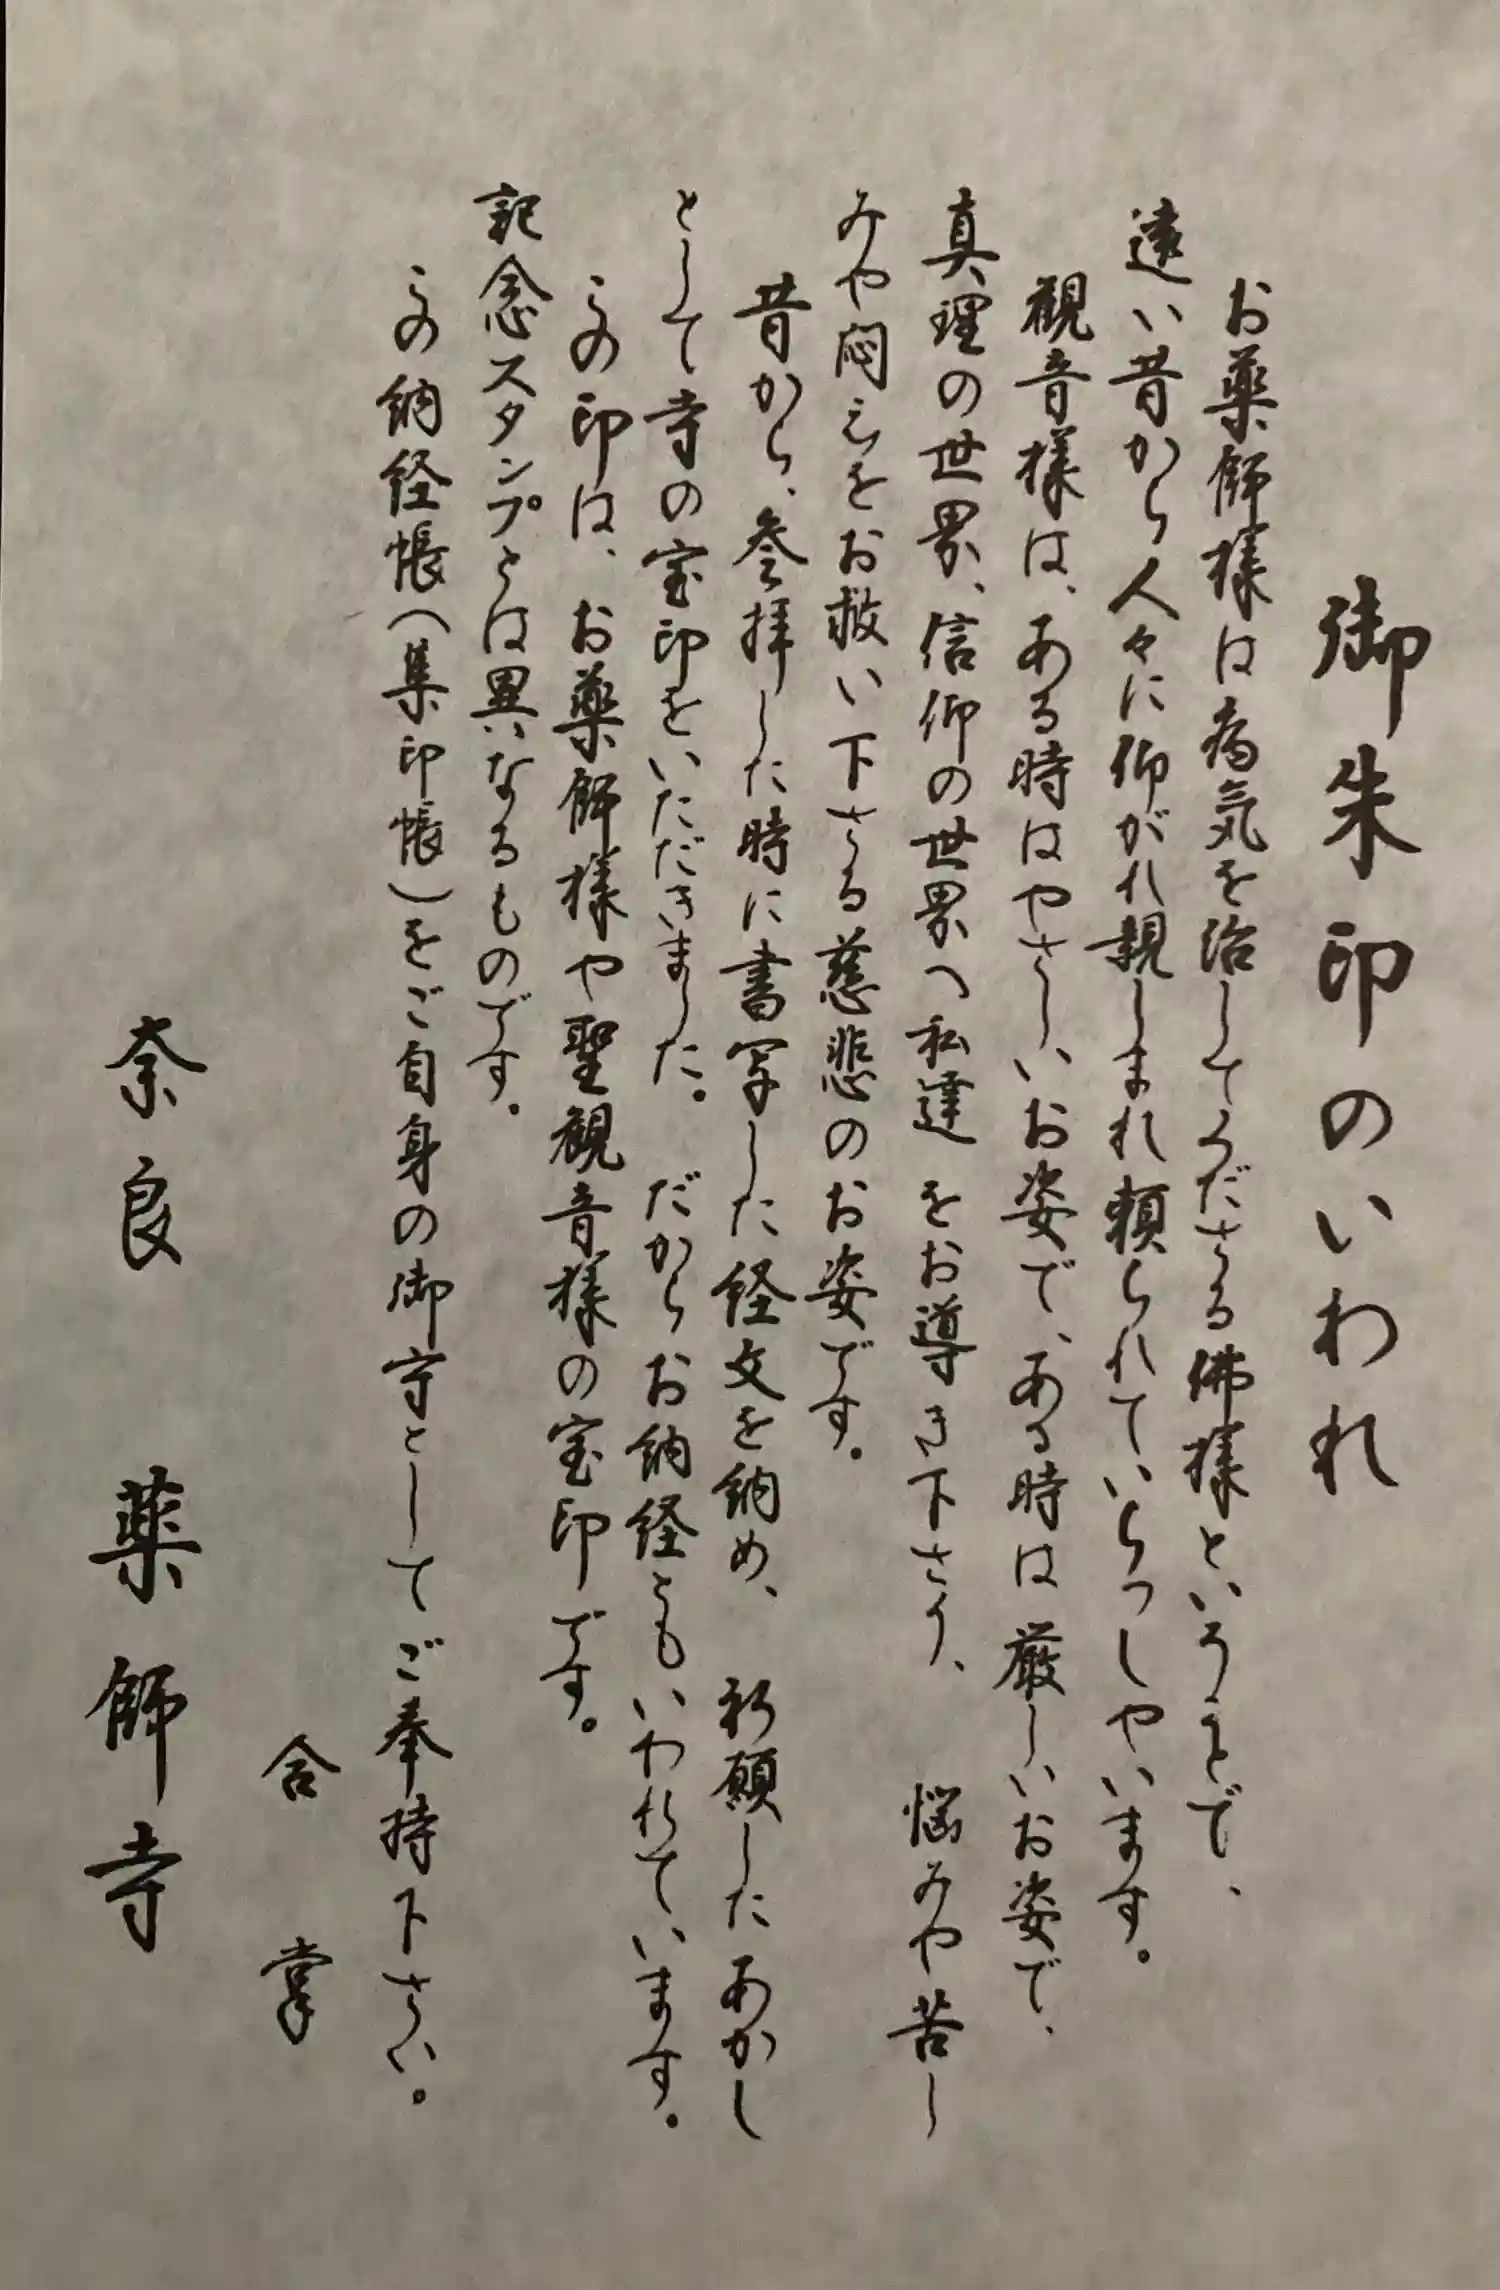 御朱印のいわれ
お薬師様は病気を治してくださる佛様というとで、
遠い昔から人々に仰がれ親しまれ頼られていらっしゃいます。
観音様は、ある時はやさしいお姿で、ある時は厳しいお姿で、
真理の世界、信仰の世界へ私達をお導き下さり、悩みや苦し
みや悶えをお救い下さる慈悲のお姿です。
昔から、参拝した時に書写した経文を納め、祈願したあかし
として寺の宝印をいただきました。だからお納経ともいわれています。
この印は、お薬師様や聖観音様の宝印です。
記念スタンプとは異なるものです。
この納経帳（集印帳）をご自身の御守としてご奉持下さい。
合掌
奈良 薬師寺